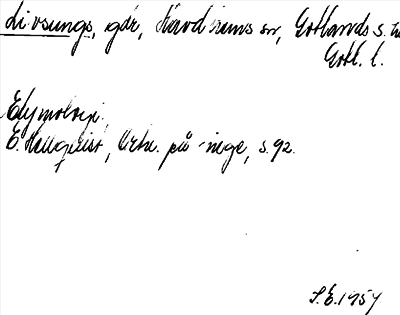 Livsungs, går, Havdhems sn, Gotlands s. h
Gotl. l.
Etymologi.
E. Hellquist, Ortn. på -inge, s. 92.
S.E. 1957